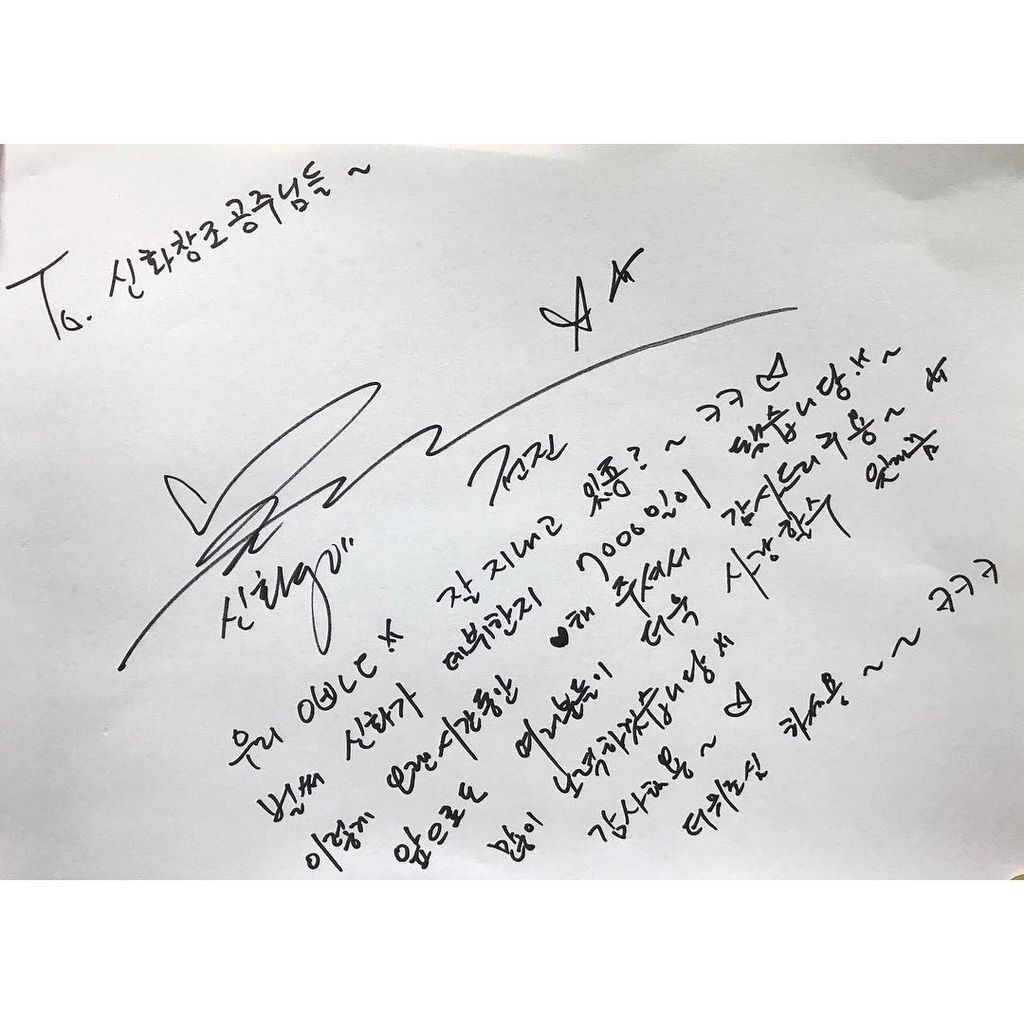 To. 신화창조공주님들~
전진
신화go"
우리 이쁘니ㄷ 잘 지내고 있죵?~ ㅋㅋ
벌써 신화가 데뷔한지 7000일이 됐습니당~
이렇게 오랜시간동안 ♥해 주셔서 감사드리구용~
앞으로도 여러분들이 더욱 사랑할수 있게끔
많이 노력하겠습니당
감사해용~
더위조심 하세용~~ ㅋㅋㅋ